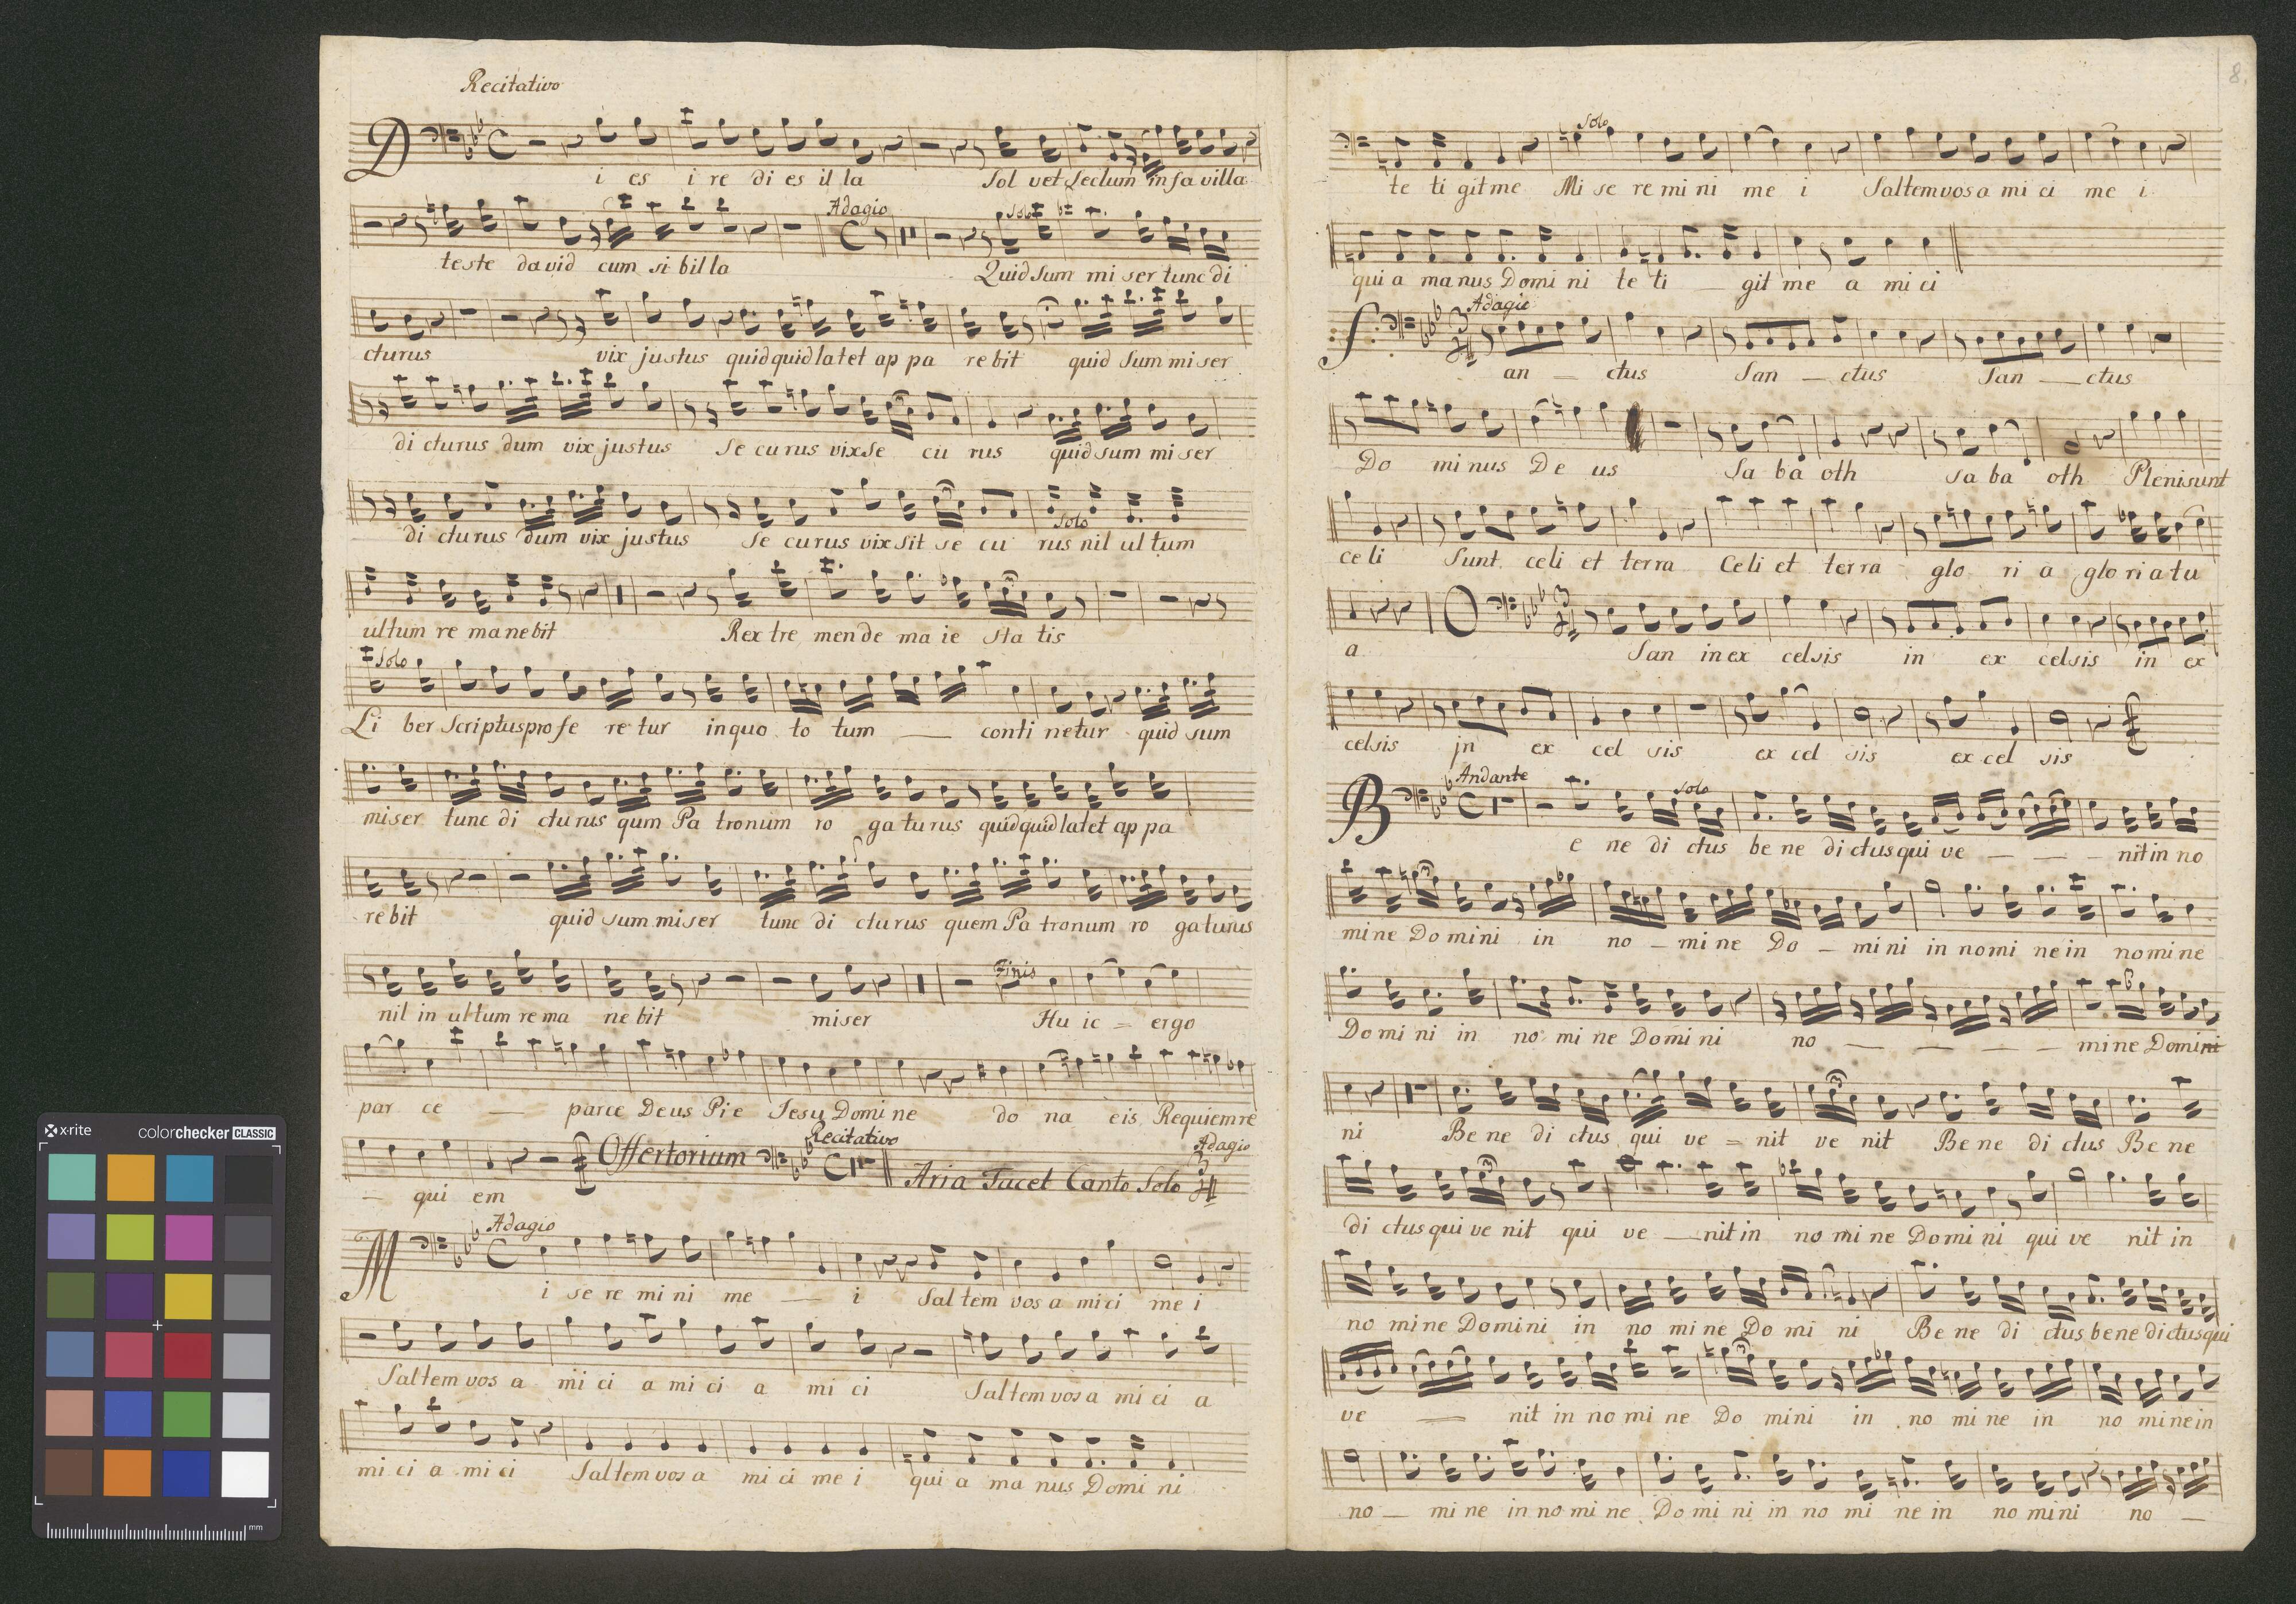 Recitativo
Di es i re di es il la Sol vet Seclum in fa villa
Adagio Solo
teste david cum si billa Quid sum mi ser tunc di
cturus vix justus quid quid latet ap pa re bit quid sum mi ser
di cturus dum vix justus se cu rus vix se cu rus quid sum mi ser
di cturus dum vix justus se curus vix sit se cu rus nil ul tum
Solo
ultum re ma nebit Rex tre men de ma ie sta tis
Solo
Li ber scriptus pro fe re tur in quo to tum — conti netur quid sum
miser tunc di cturus qum Pa tronum ro ga turus quid quid latet ap pa
re bit quid sum miser tunc di cturus quem Pa tronum ro gaturus
Finis
nil in ultum re ma ne bit miser Hu ic = ergo
par ce — parce Deus Pie Iesu Domi ne do na eis Requiem re
— qui em Offertorium Recitativo Aria Tacet Canto Solo Adagio
Adagio
Mi se re mi ni me — i Saltem vos a mici me i
Saltem vos a mi ci a mi ci a mi ci Saltem vos a mi ci a
mi ci a mi ci Saltem vos a mi ci me i qui a ma nus Domi ni
8.
Solo
te ti git me Mi se re mi ni me i Saltem vos a mi ci me i
qui a ma nus Domi ni te ti — git me a mi ci
Adagio
San — ctus San — ctus San — ctus
Do minus De us Sa ba oth sa ba oth Pleni sunt
ce li Sunt celi et terra Celi et terra glo ri a glo ri a tu
a O San in ex celsis in ex celsis in ex
celsis jn ex cel sis ex cel sis ex cel sis
Andante Solo
Be ne di ctus be ne dictus qui ve — — — nit in no
mine Do mini in no — mi ne Do — mi ni in nomi ne in nomine
Do mi ni in no mi ne Domi ni no — — — — mi ne Domini
ni Be ne di ctus qui ve = nit ve nit Be ne di ctus Be ne
di ctus qui ve nit qui ve — nit in no mi ne Domi ni qui ve nit in
no mi ne Domi ni in no mi ne Do mi ni Be ne di ctus bene dictus qui
ve — nit in no mi ne Do mini in no mi ne in no mine in
no — mi ne in no mi ne Do mi ni in no mi ne in no mini no —
x·rite colorchecker CLASSIC
mm